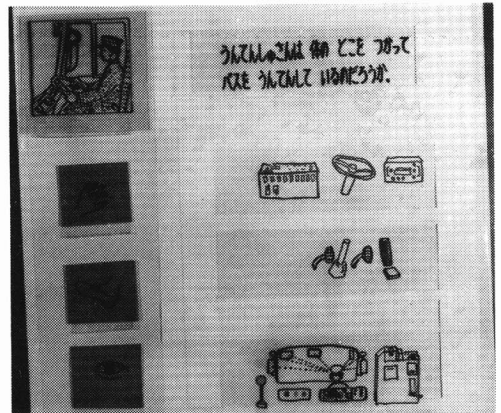 うんてんしゅさんは 体の どこを つかって
バスを うんてんして いるのだろうか。